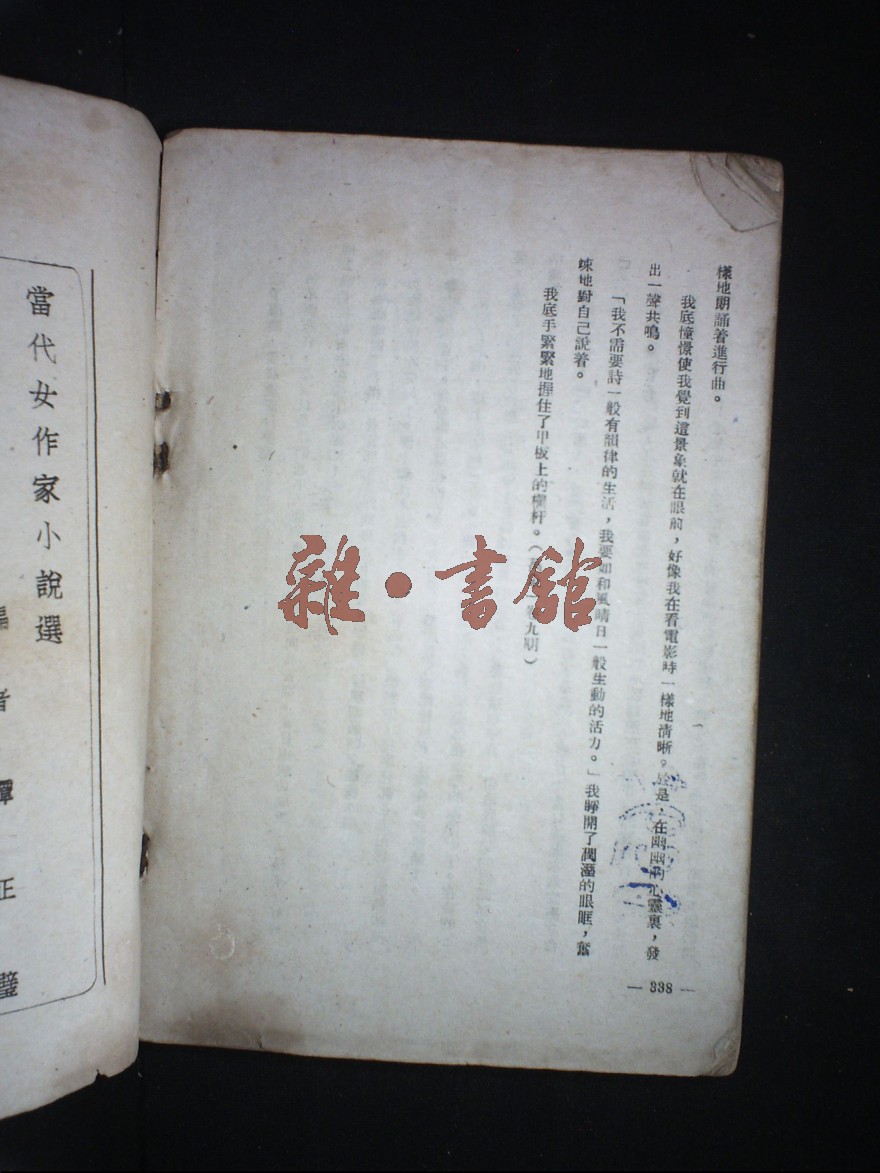 樣地期誦着進行曲。
我底憧憬使我覺到這景象就在眼前，好像我在看電影時一樣地清晰。於是，在幽幽的心靈裏，發
出一聲共鳴。
「我不需要詩一般有韻律的生活，我要如和風晴日一般生動的活力。」我睜開了潤溼的眼眶，奮
竦地對自己說着。
我底手緊緊地握住了甲板上的欄杆。（卷九期）
— 338 —
當代女作家小說選
編者譚正璧
雜·書館